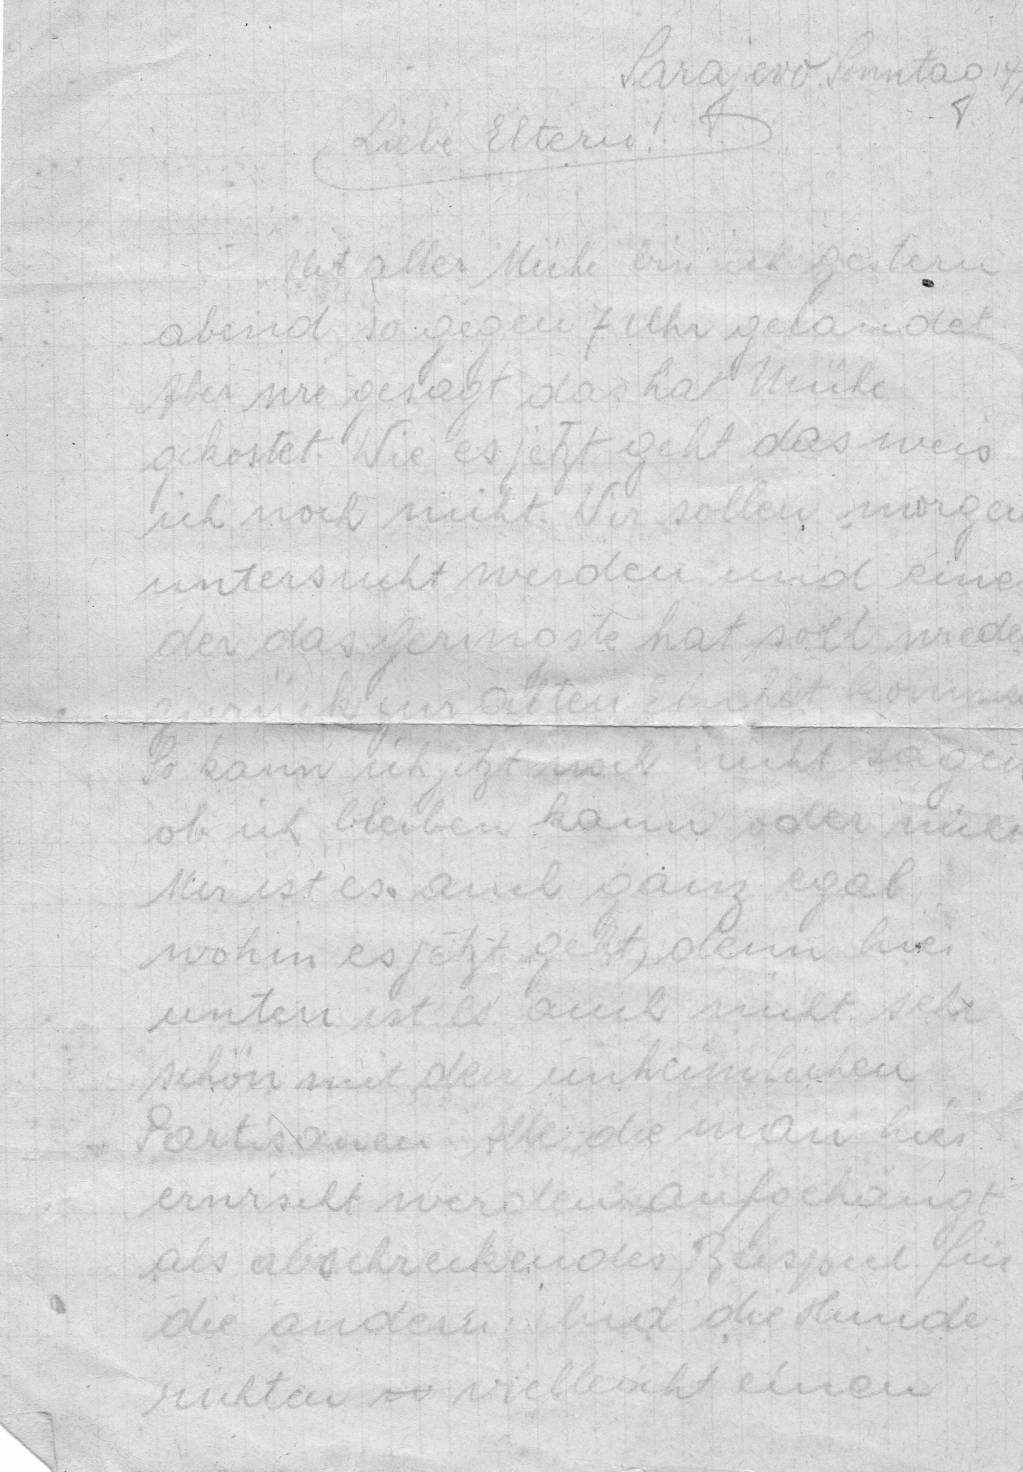 Sarajevo. Sonntag 14/
8
Liebe Eltern!
Mit aller Mühe bin ich gestern
abend so gegen 7 Uhr gelandet
Aber wie gesagt das hat Mühe
gekostet. Wie es jetzt geht das weis
ich noch nicht. Wir sollen morgen
untersucht werden und eine
der das geringste hat soll wiede
zurück zur alten Einheit komme
So kann ich jetzt noch nicht sagen
ob ich bleiben kann oder nich
Mir ist es auch ganz egal
wohin es jetzt geht, denn hier
unten ist es auch nicht sehr
schön mit den unheimlichen
Partisanen. Alle die man hier
erwischt werden aufgehängt
als abschreckendes Beispiel für
die andern. Und die Hunde
richten vielleicht einen